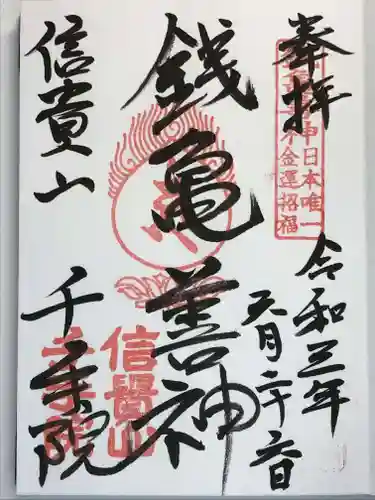 奉拝
令和三年
五月二十六日
銭亀善神
信貴山
千手院
神日本唯一
金運招福
信貴山
千手院